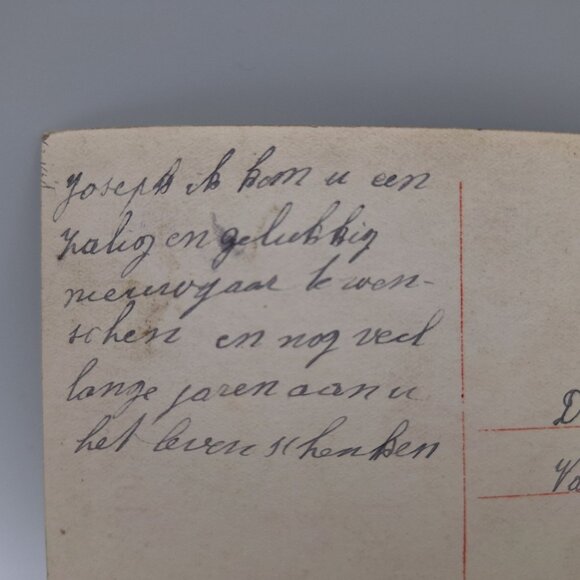 Joseph ik kom u een
zalig en gelukkig
nieuwgaar te wen-
schen en nog veel
lange jaren aan u
het leven schenken
D
Va